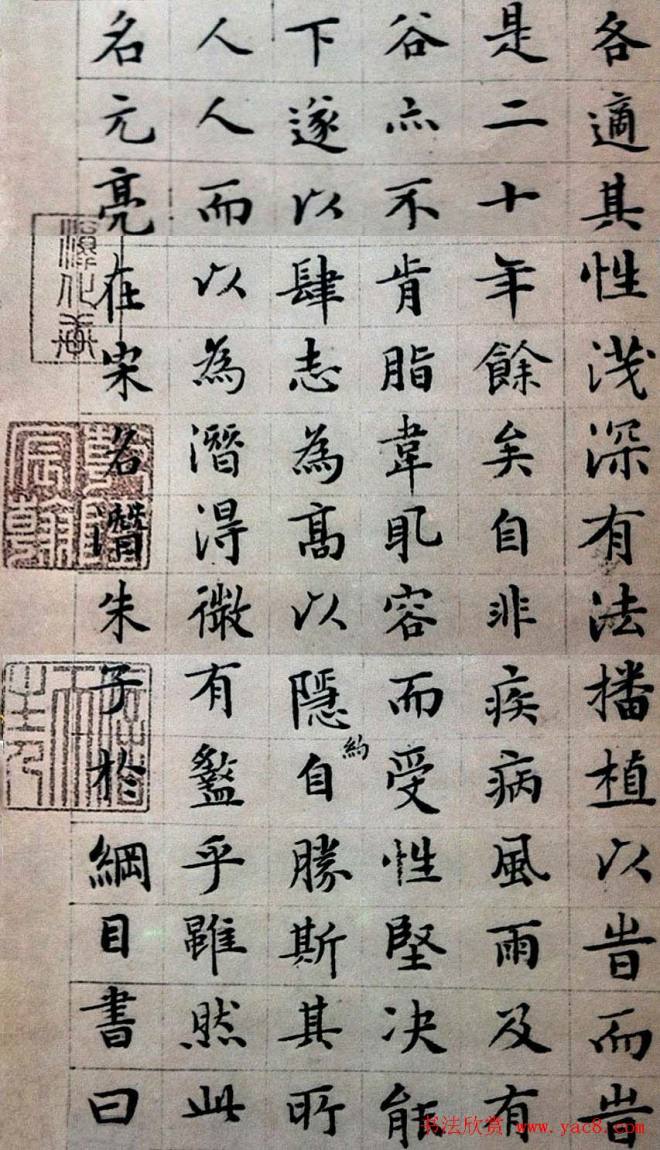 各適其性浅深有法播植以旹而旹
是二十年餘矣自非疾病風雨及有
谷亦不肯脂韋取容而受性堅决能
下遂以肆志為髙以隱約自勝斯其所
人人而以為潛得微有盭乎雖然此
名元亮在宋名潛朱子於綱目書曰
书法欣赏 www.yac8.com